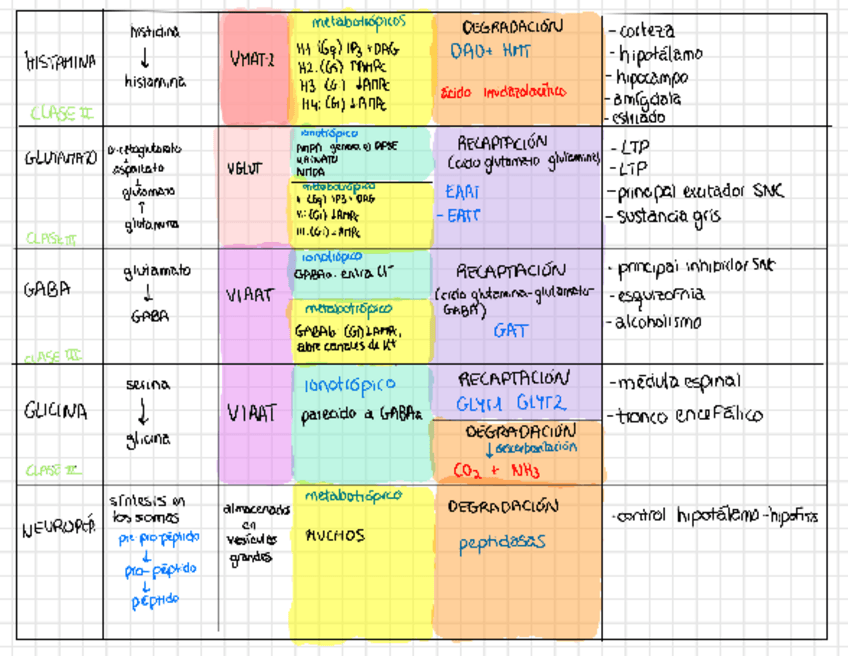 HISTAMINA
CLASE II
histidina
↓
histamina
VMAT-2
metabotrópicos
H1 (Gq) IP3 + DAG
H2. (Gs) ↑AMPc
H3 (Gi) ↓AMPc
H4: (Gi) ↓AMPc
DEGRADACIÓN
DAO+ HMT
ácido imidazolacético
- corteza
- hipotálamo
- hipocampo
- amígdala
- estriado
GLUTAMATO
CLASE III
α-cetoglutarato
aspartato
↓
glutamato
↑
glutamina
VGLUT
ionotrópico
AMPA genera el
KAINATO
NMDA
metabotrópico
I (Gq) IP3 + DAG
II: (Gi) ↓AMPc
III. (Gi) - AMPc
RECAPTACIÓN
(ciclo glutamato glutamina)
EAAT
- EATT
- LTP
- LTP
- principal exitador SNC
- sustancia gris
GABA
CLASE III
glutamato
↓
GABA
VIAAT
ionotrópico
GABAa. entra Cl⁻
metabotrópico
GABAb (Gi) ↓AMPc,
abre canales de K+
RECAPTACIÓN
(ciclo glutamina-glutamato-
GABA)
GAT
- principal inhibidor SNC
- esquizofrnia
- alcoholismo
GLICINA
CLASE III
serina
↓
glicina
VIAAT
ionotrópico
parecido a GABAa
RECAPTACIÓN
GLYT1 GLYT2
DEGRADACIÓN
↓ descarboxilación
CO2 + NH3
- médula espinal
- tronco encefálico
NEUROPÉP.
síntesis en
los somas
pre-pro-péptido
↓
pro-péptido
↓
péptido
almacenados
en
vesículas
grandes
metabotrópico
MUCHOS
DEGRADACIÓN
peptidasas
- control hipotálamo-hipófisis